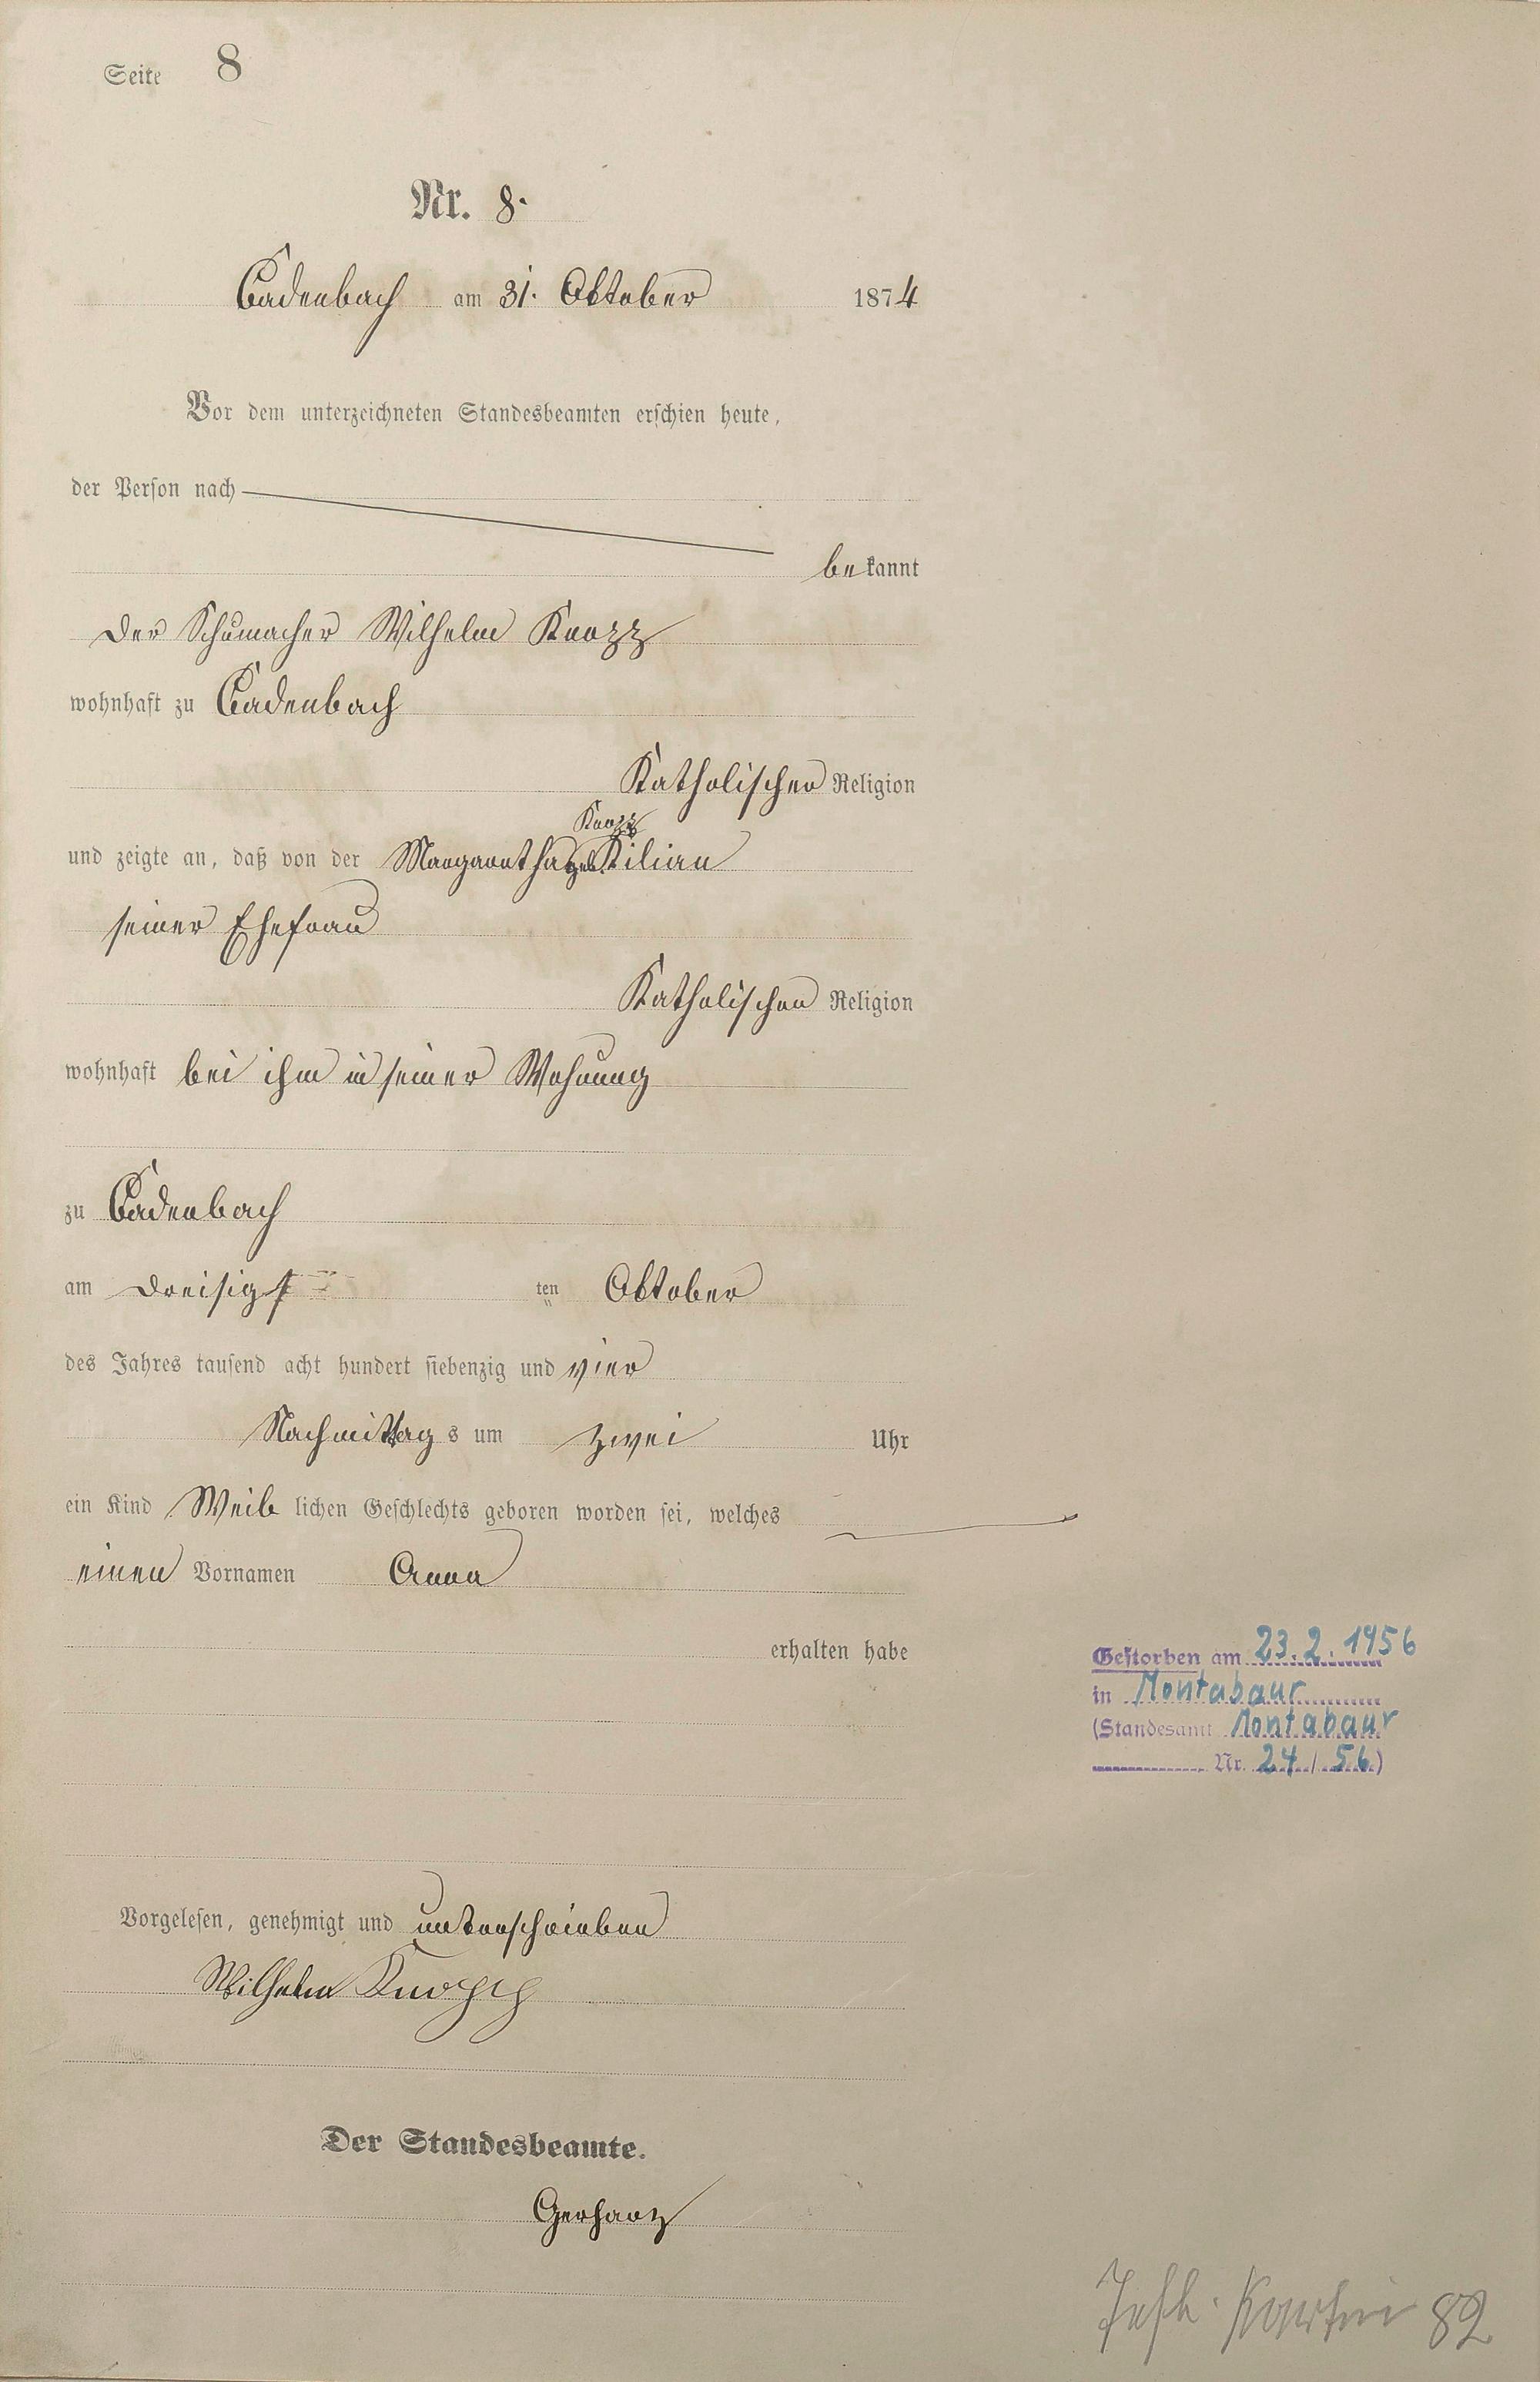 Seite 8
Nr. 8.
Cadenbach am 31. Oktober 1874
Vor dem unterzeichneten Standesbeamten erschien heute,
der Person nach
bekannt
der Schumacher Wilhelm Knopp
wohnhaft zu Cadenbach
Katholischer Religion
Knopp
und zeigte an, daß von der Margaretha geb. Kilian
seiner Ehefrau
Katholischen Religion
wohnhaft bei ihm in seiner Wohnung
zu Cadenbach
am dreisigsten Oktober
des Jahres tausend acht hundert siebenzig und vier
Nachmittags um zwei Uhr
ein Kind Weiblichen Geschlechts geboren worden sei, welches
einen Vornamen Anna
erhalten habe
Gestorben am 23.2.1956
in Montabaur
(Standesamt Montabaur
Nr. 24/56)
Vorgelesen, genehmigt und unterschrieben
Wilhelm Knopp
Der Standesbeamte.
Gerharz
82